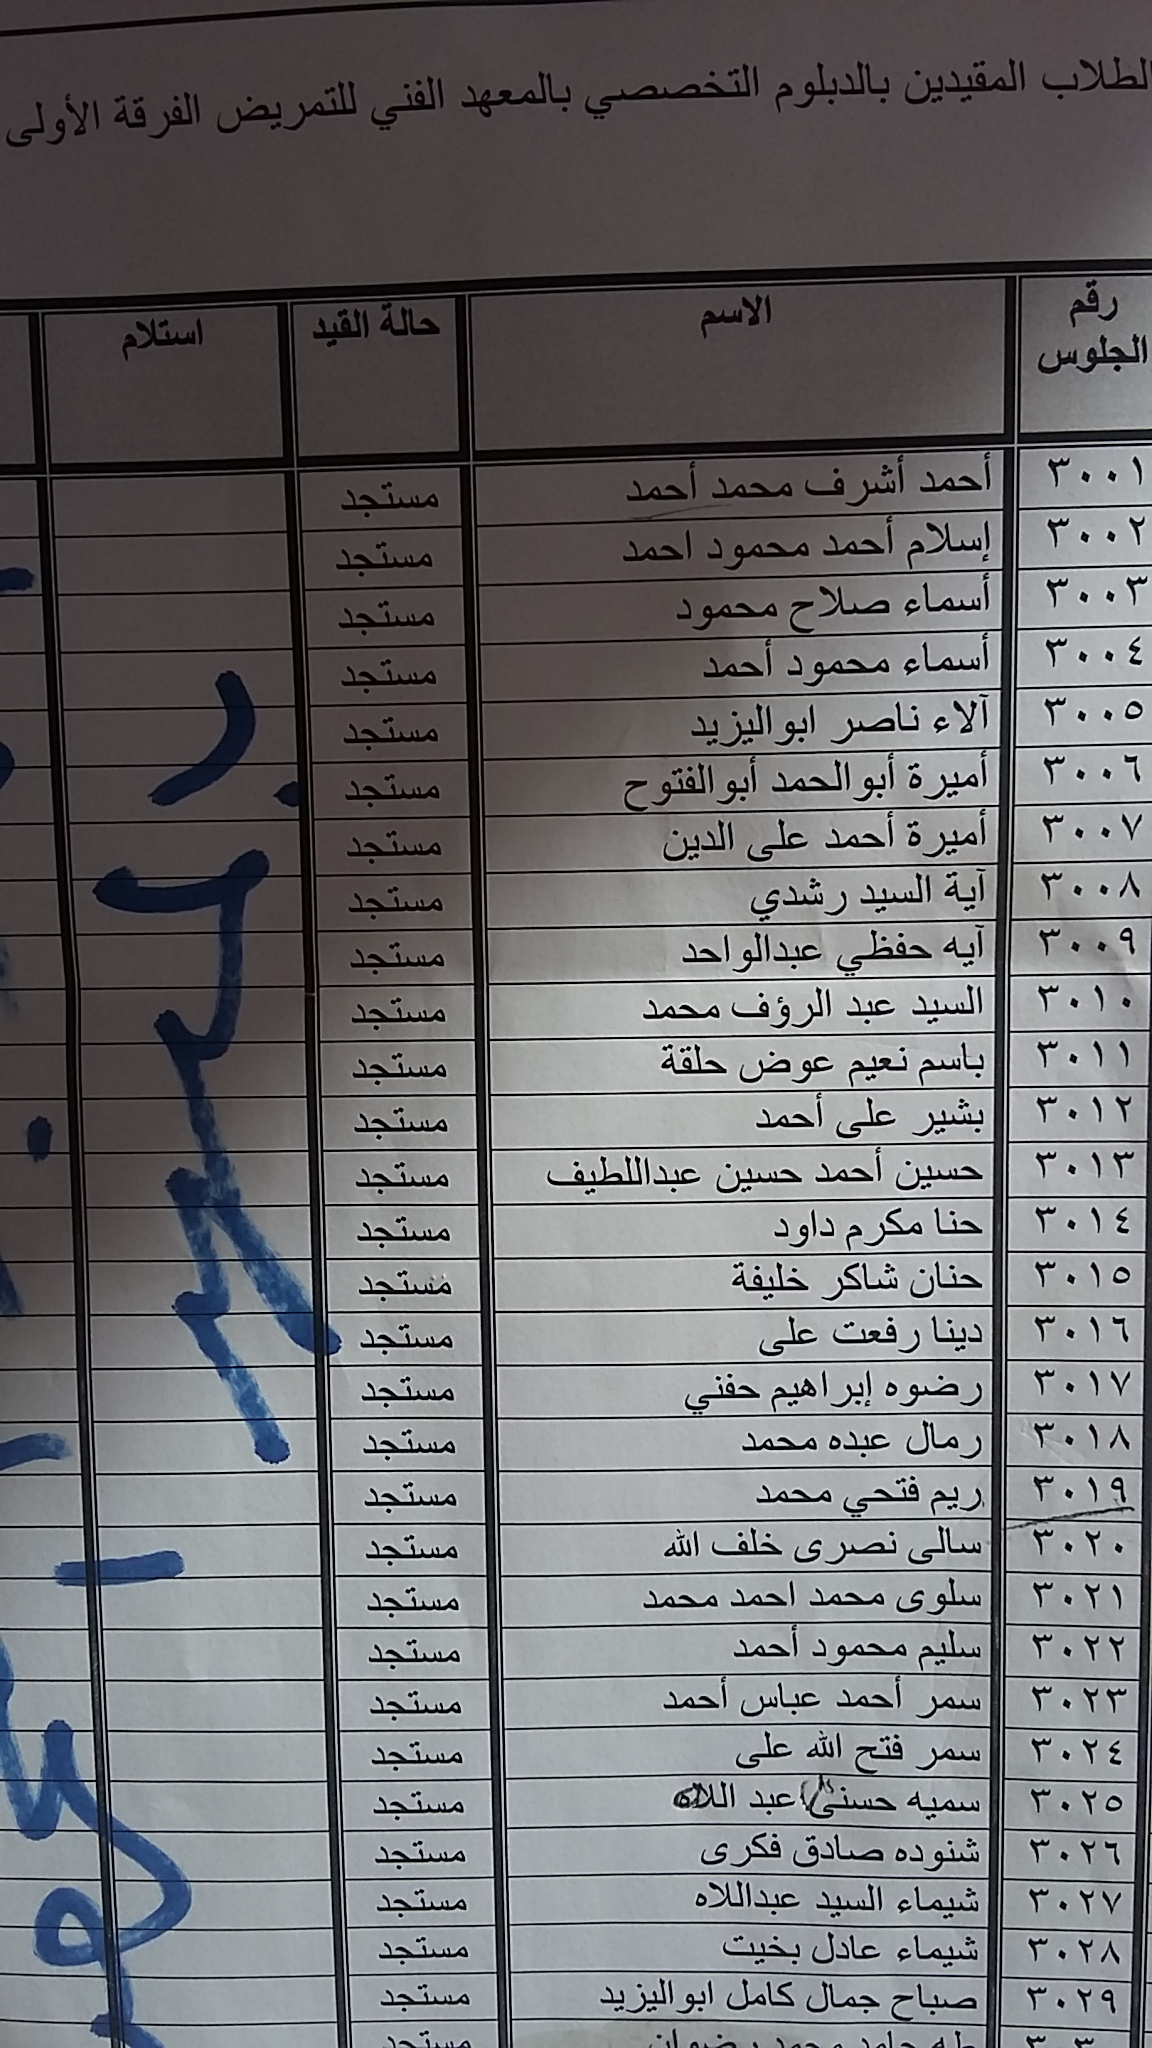 الطلاب المقيدين بالدبلوم التخصصي بالمعهد الفني للتمريض الفرقة الأولى
رقم الجلوس الاسم حالة القيد استلام
٣٠٠١ أحمد أشرف محمد أحمد مستجد
٣٠٠٢ إسلام أحمد محمود احمد مستجد
٣٠٠٣ أسماء صلاح محمود مستجد
٣٠٠٤ أسماء محمود أحمد مستجد
٣٠٠٥ آلاء ناصر ابواليزيد مستجد
٣٠٠٦ أميرة أبوالحمد أبوالفتوح مستجد
٣٠٠٧ أميرة أحمد على الدين مستجد
٣٠٠٨ آية السيد رشدي مستجد
٣٠٠٩ آيه حفظي عبدالواحد مستجد
٣٠١٠ السيد عبد الرؤف محمد مستجد
٣٠١١ باسم نعيم عوض حلقة مستجد
٣٠١٢ بشير على أحمد مستجد
٣٠١٣ حسين أحمد حسين عبداللطيف مستجد
٣٠١٤ حنا مكرم داود مستجد
٣٠١٥ حنان شاكر خليفة مستجد
٣٠١٦ دينا رفعت على مستجد
٣٠١٧ رضوه إبراهيم حفني مستجد
٣٠١٨ رمال عبده محمد مستجد
٣٠١٩ ريم فتحي محمد مستجد
٣٠٢٠ سالى نصرى خلف الله مستجد
٣٠٢١ سلوى محمد احمد محمد مستجد
٣٠٢٢ سليم محمود أحمد مستجد
٣٠٢٣ سمر أحمد عباس أحمد مستجد
٣٠٢٤ سمر فتح الله على مستجد
٣٠٢٥ سميه حسنى عبد اللاه مستجد
٣٠٢٦ شنوده صادق فكرى مستجد
٣٠٢٧ شيماء السيد عبداللاه مستجد
٣٠٢٨ شيماء عادل بخيت مستجد
٣٠٢٩ صباح جمال كامل ابواليزيد مستجد
طه حامد محمد رضوان مستجد